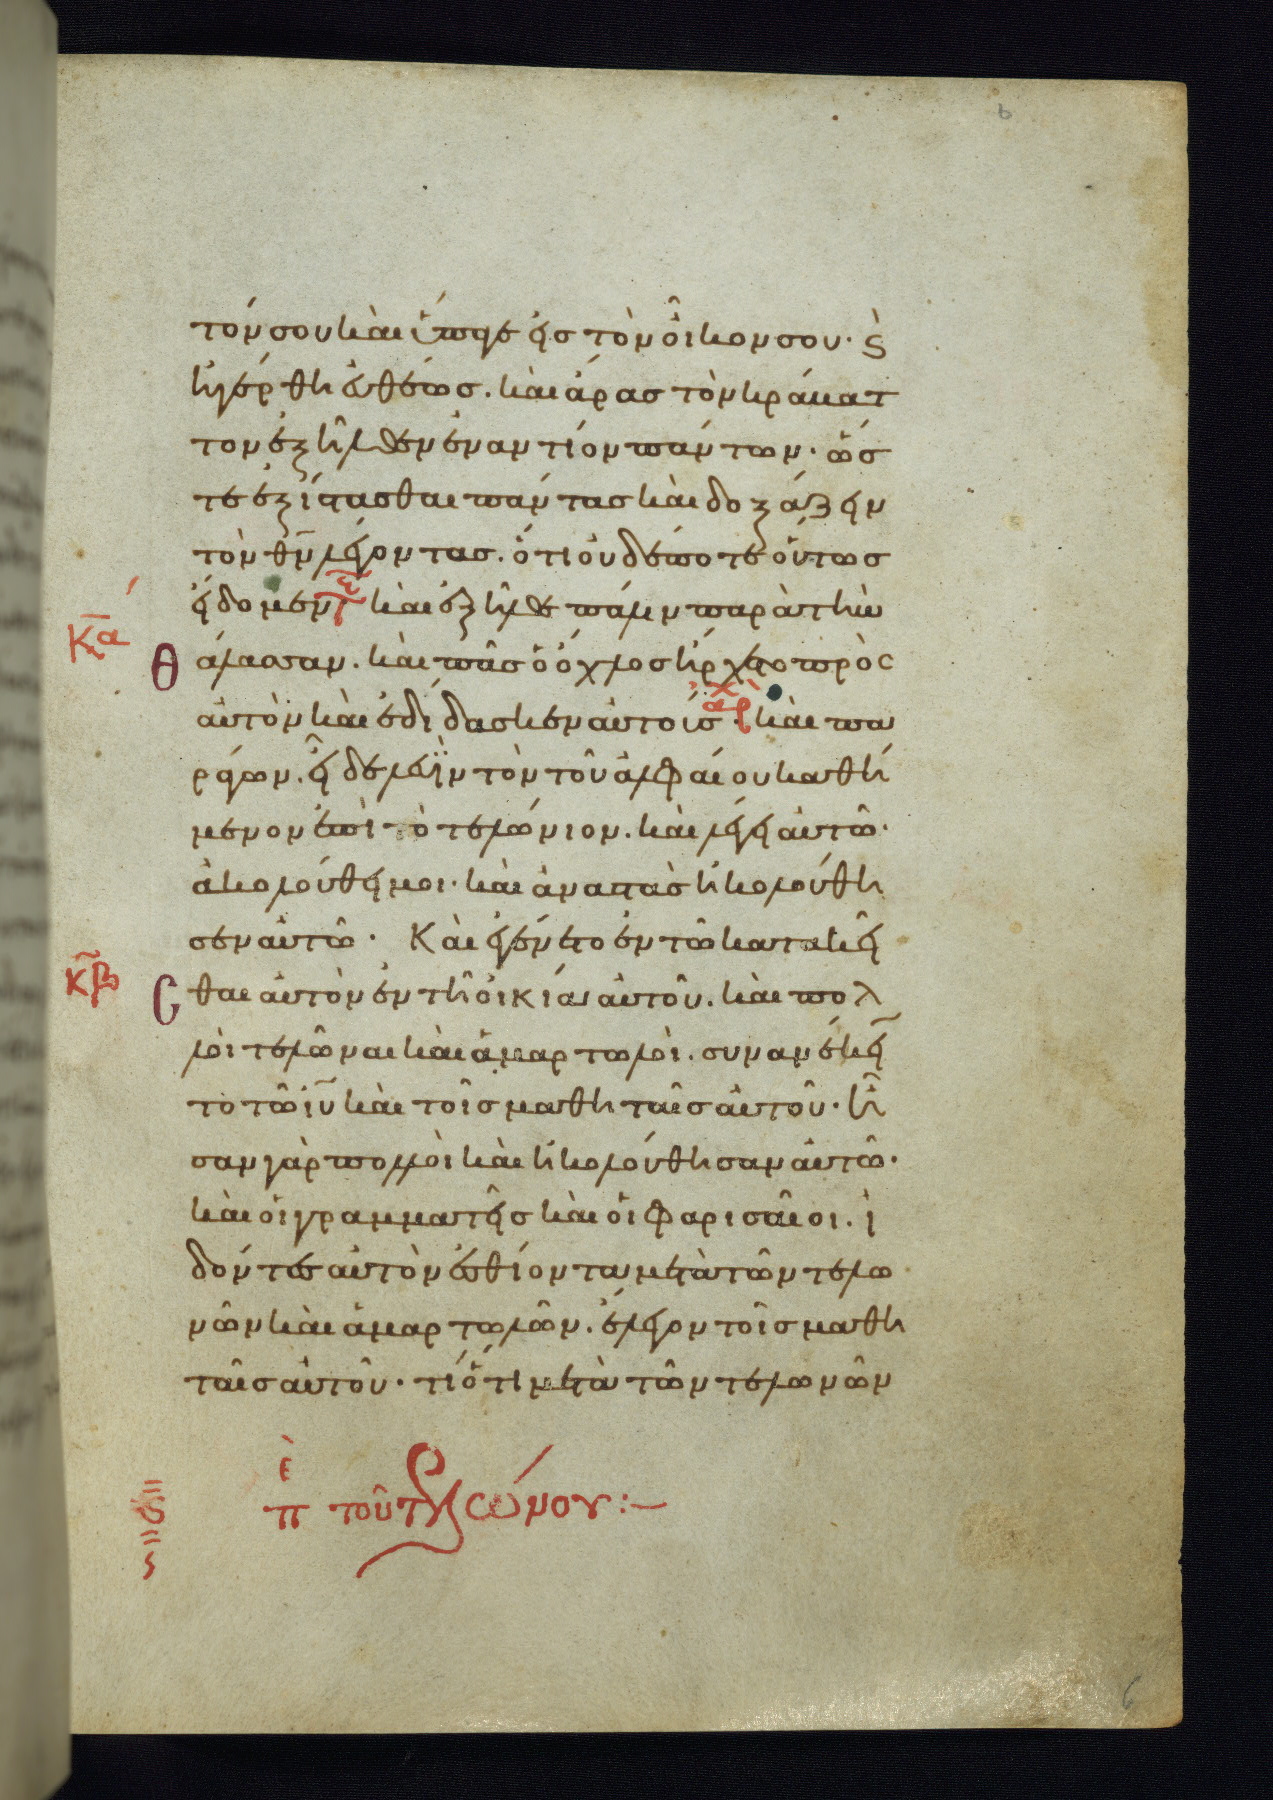 τόν σου καὶ ὕπαγε εἰς τὸν οἶκον σου· ϗ
ἠγέρθη εὐθέως. καὶ ἄρας τὸν κράματ
τον ἐξῆλθεν ἐναντίον πάντων· ὥσ
τε ἐξίστασθαι πάντας καὶ δοξάζειν
τὸν θν̄ λέγοντας. ὅτι οὐδέποτε οὕτως
εἴδομεν καὶ ἐξῆλθε πάλιν παρὰ τὴν
κ̄α
θάλασσαν. καὶ πᾶς ὁ ὄχλος ἤρχετο πρὸς
αὐτὸν καὶ ἐδίδασκεν αὐτοῖς· ἀρχ καὶ πα
ράγων. εἶδε λευῒν τὸν τοῦ ἀλφαίου καθή
μενον ἐπὶ τὸ τελώνιον. καὶ λέγει αὐτῶ·
ἀκολούθει μοι· καὶ ἀναστὰς ἠκολούθη
σεν αὐτῶ· Καὶ ἐγένετο ἐν τῶ κατακεῖ
κ̄β
σθαι αὐτὸν ἐν τῆ οἰκίαι αὐτοῦ. καὶ πολ
λοὶ τελῶναι καὶ ἁμαρτωλοὶ. συνανέκειν
το τῶ ἰῡ καὶ τοῖς μαθηταῖς αὐτοῦ· ἦ
σαν γὰρ πολλοὶ καὶ ἠκολούθησαν αὐτῶ·
καὶ οἱ γραμματεῖς καὶ οἱ φαρισαῖοι. ἰ
δόντες αὐτὸν ἐσθίοντα μετὰ τῶν τελω
νῶν καὶ ἁμαρτωλῶν. ἔλεγον τοῖς μαθη
ταῖς αὐτοῦ· τί ὅτι μετὰ τῶν τελωνῶν